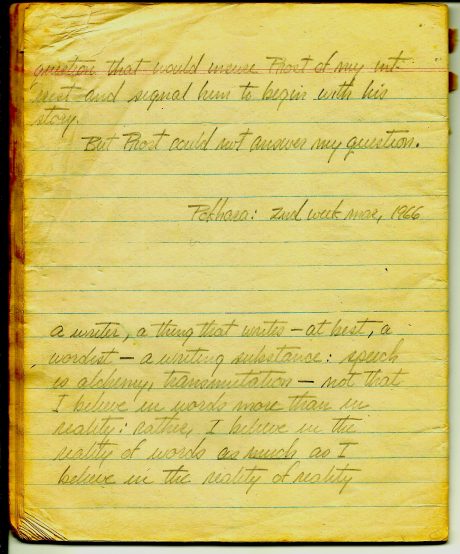 question that would insure Prost of my int-
erest and signal him to begin with his
story.
But Prost could not answer my question.
Pokhara: 2nd week mar, 1966
a writer, a thing that writes – at best, a
wordist – a writing substance: speech
is alchemy, transmutation – not that
I believe in words more than in
reality: rather, I believe in the
reality of words as much as I
believe in the reality of reality